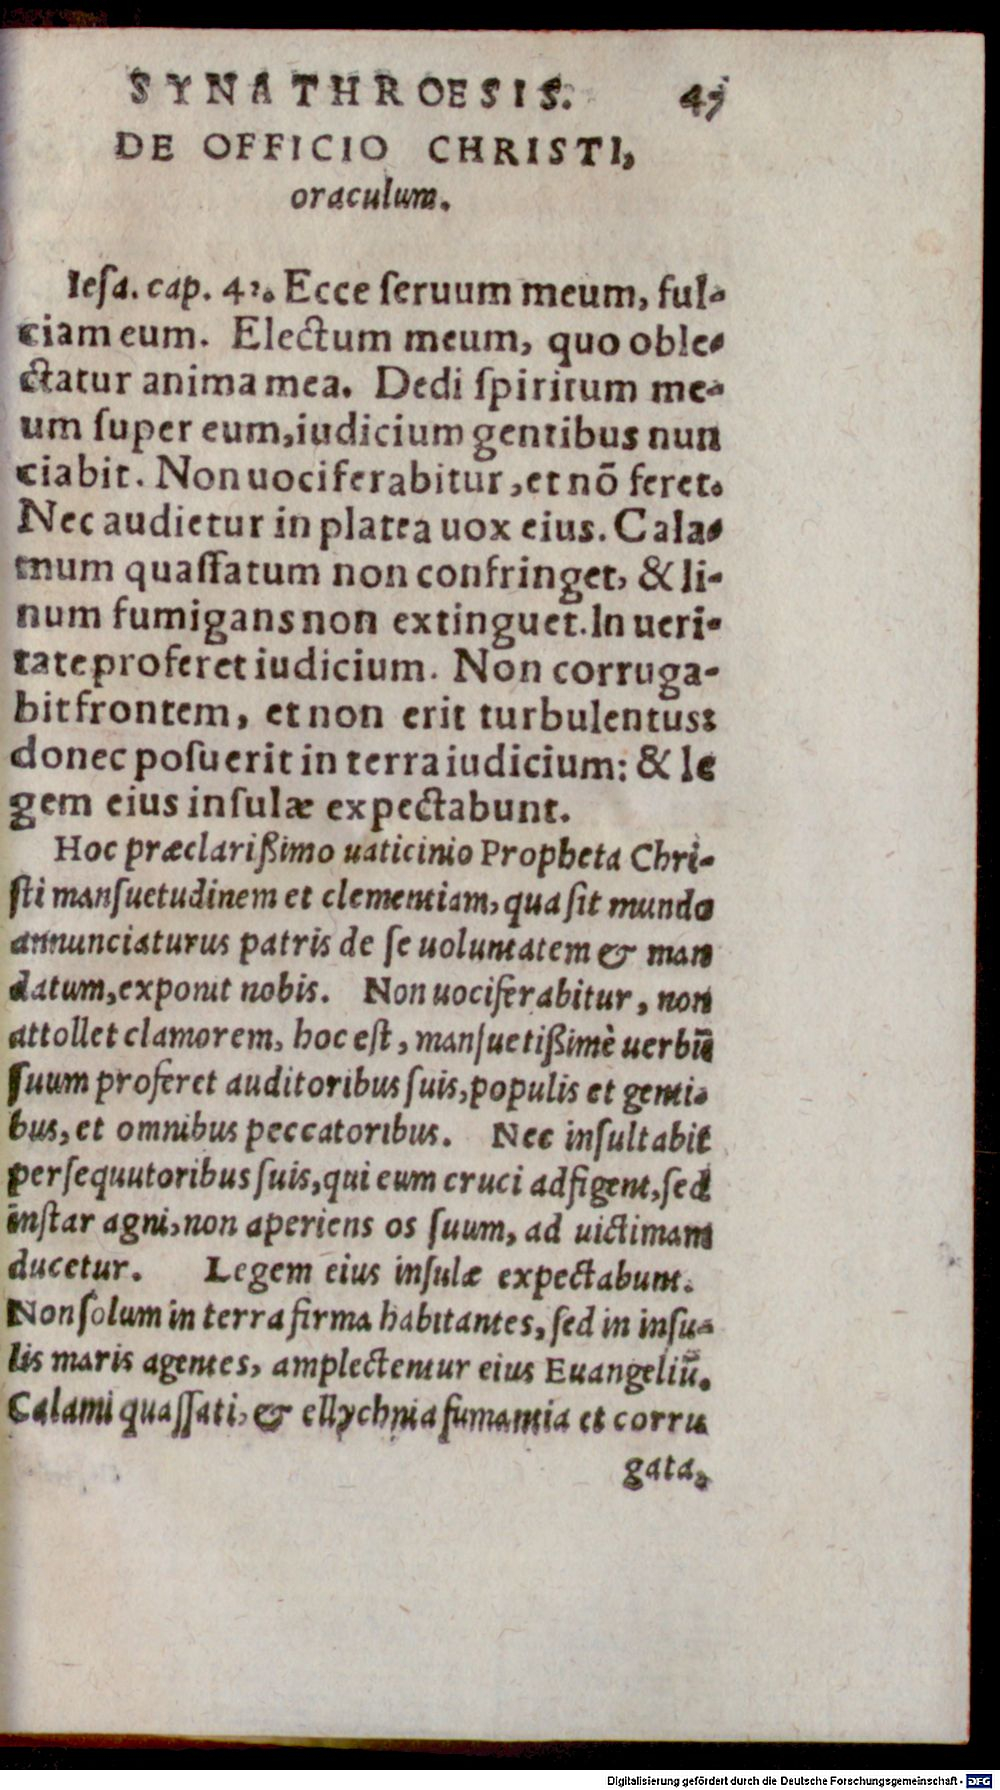 SYNATHROESIS. 45
DE OFFICIO CHRISTI,
oraculum.
Iesa. cap. 42. Ecce seruum meum, ful-
ciam eum. Electum meum, quo oble-
ctatur anima mea. Dedi spiritum me-
um super eum, iudicium gentibus nun
ciabit. Non uociferabitur, et nõ feret.
Nec audietur in platea uox eius. Cala-
mum quassatum non confringet, & li-
num fumigans non extinguet. In ueri-
tate proferet iudicium. Non corruga-
bit frontem, et non erit turbulentus:
donec posuerit in terra iudicium: & le
gem eius insulæ expectabunt.
Hoc præclarißimo uaticinio Propheta Chri-
sti mansuetudinem et clementiam, qua sit mundo
annunciaturus patris de se uoluntatem & man
datum, exponit nobis. Non uociferabitur, non
attollet clamorem, hoc est, mansuetißimè uerbũ
suum proferet auditoribus suis, populis et genti-
bus, et omnibus peccatoribus. Nec insultabit
persequutoribus suis, qui eum cruci adfigent, sed
instar agni, non aperiens os suum, ad uictimam
ducetur. Legem eius insulæ expectabunt.
Non solum in terra firma habitantes, sed in insu-
lis maris agentes, amplectentur eius Euangeliũ.
Calami quassati, & ellychnia fumantia et corru
gata,
Digitalisierung gefördert durch die Deutsche Forschungsgemeinschaft - DFG